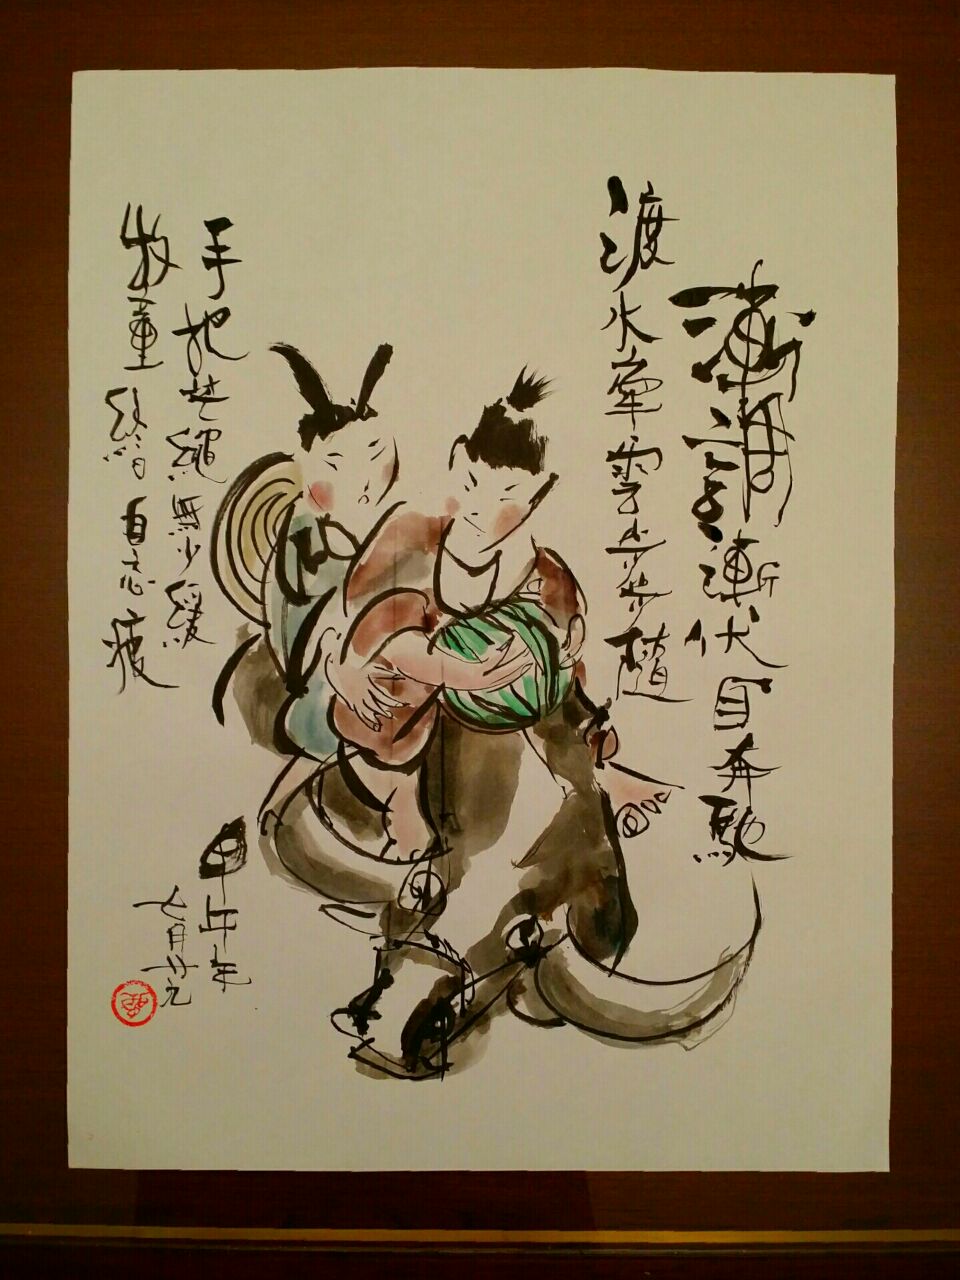 漸調漸伏息奔馳
渡水穿雲步步隨
手把芒繩無少緩
牧童終日自忘疲
甲午年
七月廿九